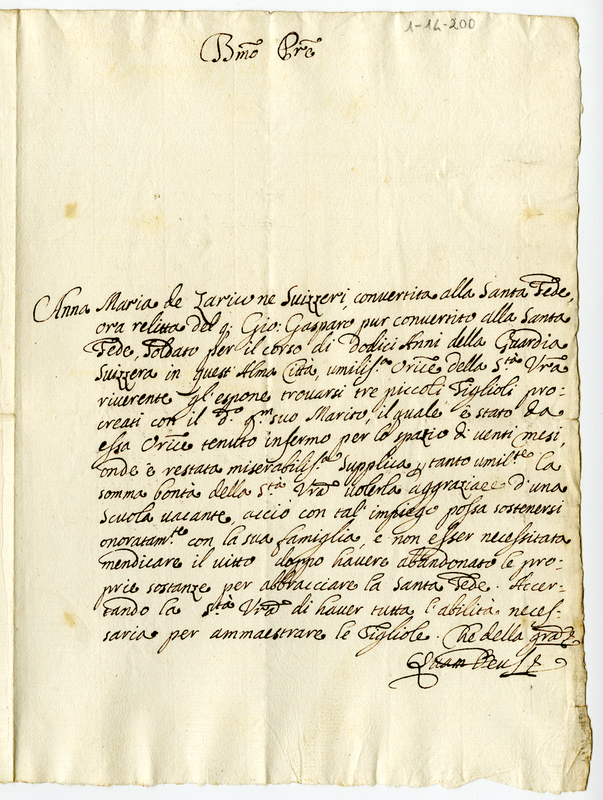 1-14-200
Bmo Pre
Anna Maria de Zarico ne Suizzeri, convertita alla Santa Fede,
ora relitta del q: Gio: Gasparo pur convertito alla Santa
Fede, Soldato per il corso di Dodici Anni della Guardia
Suizzera in quest'Alma Città, umilissa Orice della Stà Vra
riverente gl'espone trouarsi tre piccoli Figlioli pro:
creati con il do qm suo Marito, il quale è stato da
essa Orice tenuto infermo per lo spazio di venti mesi,
onde è restata miserabilissa Supplica tanto umilte la
somma bontà della Stà Vra volerla aggraziare d'una
Scuola vacante, acciò con tal'impiego possa sostenersi
onoratamte con la sua famiglia, e non esser necessitata
mendicare il vitto doppo hávere abandonato le pro-
prie sostanze per abbracciare la Santa Fede. Accer-
tando la Stà Vra di haver tutta l'abilità neces-
saria per ammaestrare le Figliole. Che della gra &
Quam Deus &